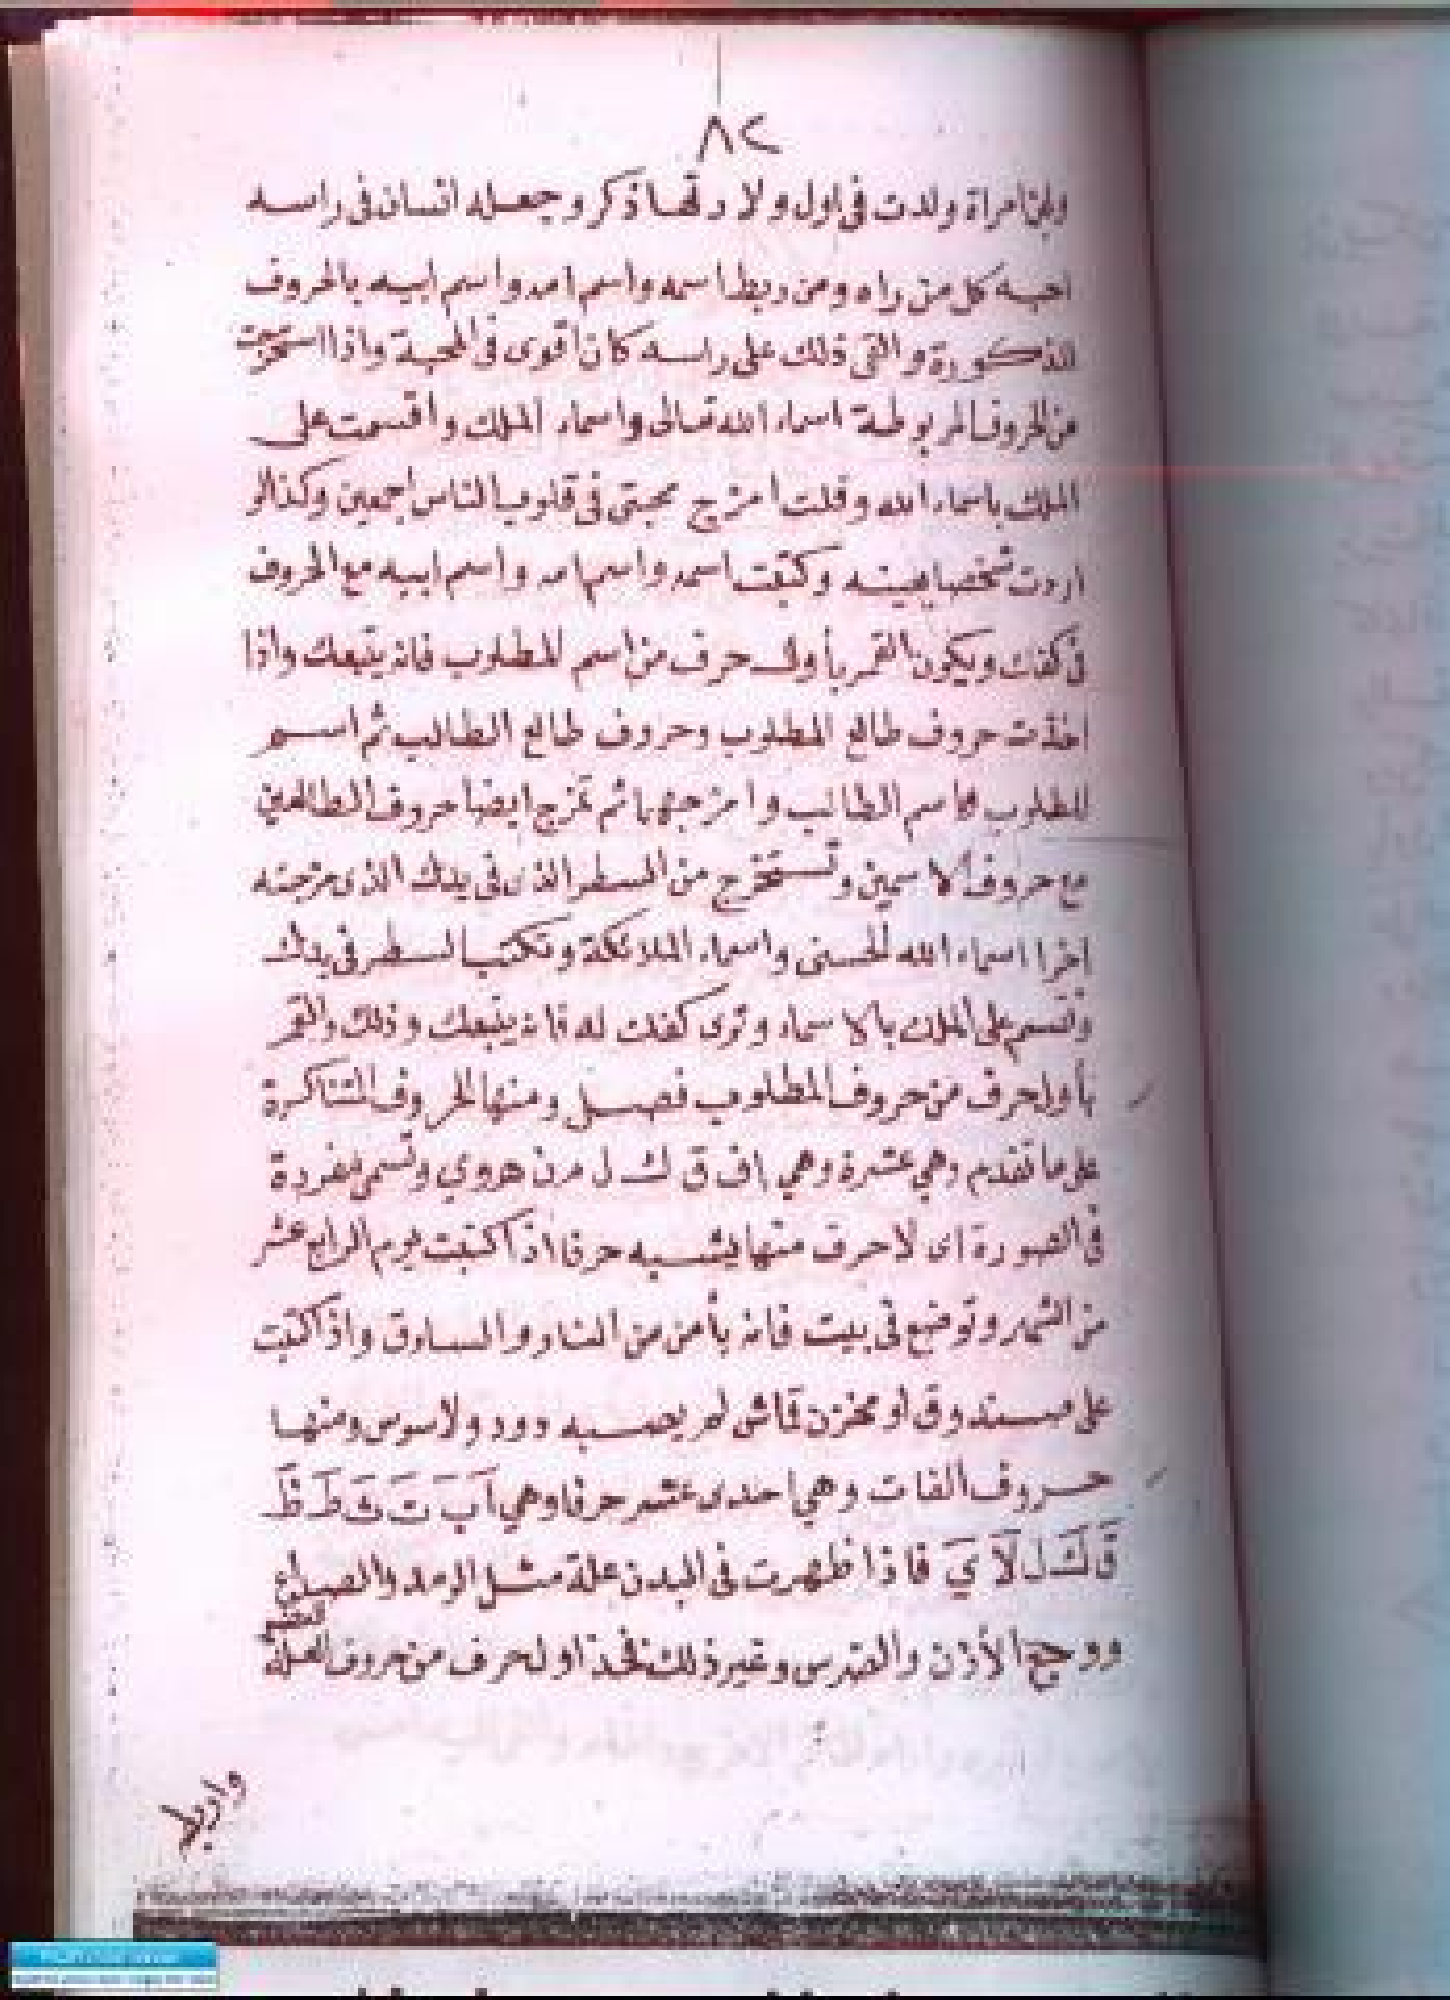 ٨٢
امراة ولدت في اول ولادتها ذكر وجعله انسان في راسه
احبه كل من راه ومن ربط اسمه واسم امه واسم ابيه بالحروف
المذكورة والقى ذلك على راسه كان اقوى في المحبة واذا استخرجت
من الحروف المربوطة اسماء الله تعالى واسماء الملك واقسمت على
الملك باسماء الله وقلت امزج محبتى في قلوب الناس اجمعين وكذا لو
اردت شخصا بعينه وكتبت اسمه واسم امه واسم ابيه مع الحروف
في كفك ويكون القمر بأول حرف من اسم المطلوب فانه يتبعك واذا
اخذت حروف طالع المطلوب وحروف طالع الطالب ثم اسم
المطلوب اسم الطالب وامزجهما ثم تمزج ايضا حروف الطالعين
مع حروف الاسمين وتستخرج من السطر الذى في يدك الذى مزجته
اخرا اسماء الله الحسنى واسماء الملائكة وتكتب السطر في يدك
وتقسم على الملك بالاسماء وترى كفك له فانه يتبعك وذلك والقمر
بأول حرف من حروف المطلوب فصل ومنها الحروف المتناكرة
على ما تقدم وهي عشرة وهي اف ق ك ل م ن ه و ي وتسمى مفردة
في الصورة اى لا حرف منها يشبه حرفا اذا كتبت يوم الرابع عشر
من الشهر وتوضع في بيت فانه يأمن من النار والسارق واذا كتبت
على صندوق او مخزن قماش لم يصبه دود ولا سوس ومنها
حروف الفات وهي احدى عشر حرفا وهي آ ب ت ث ط ظ
ق ك ل لا ي فاذا ظهرت في البدن علة مثل الرمد والصداع
ووجع الأذن والضرس وغير ذلك فخذ اول حرف من حروف العلة
واربط